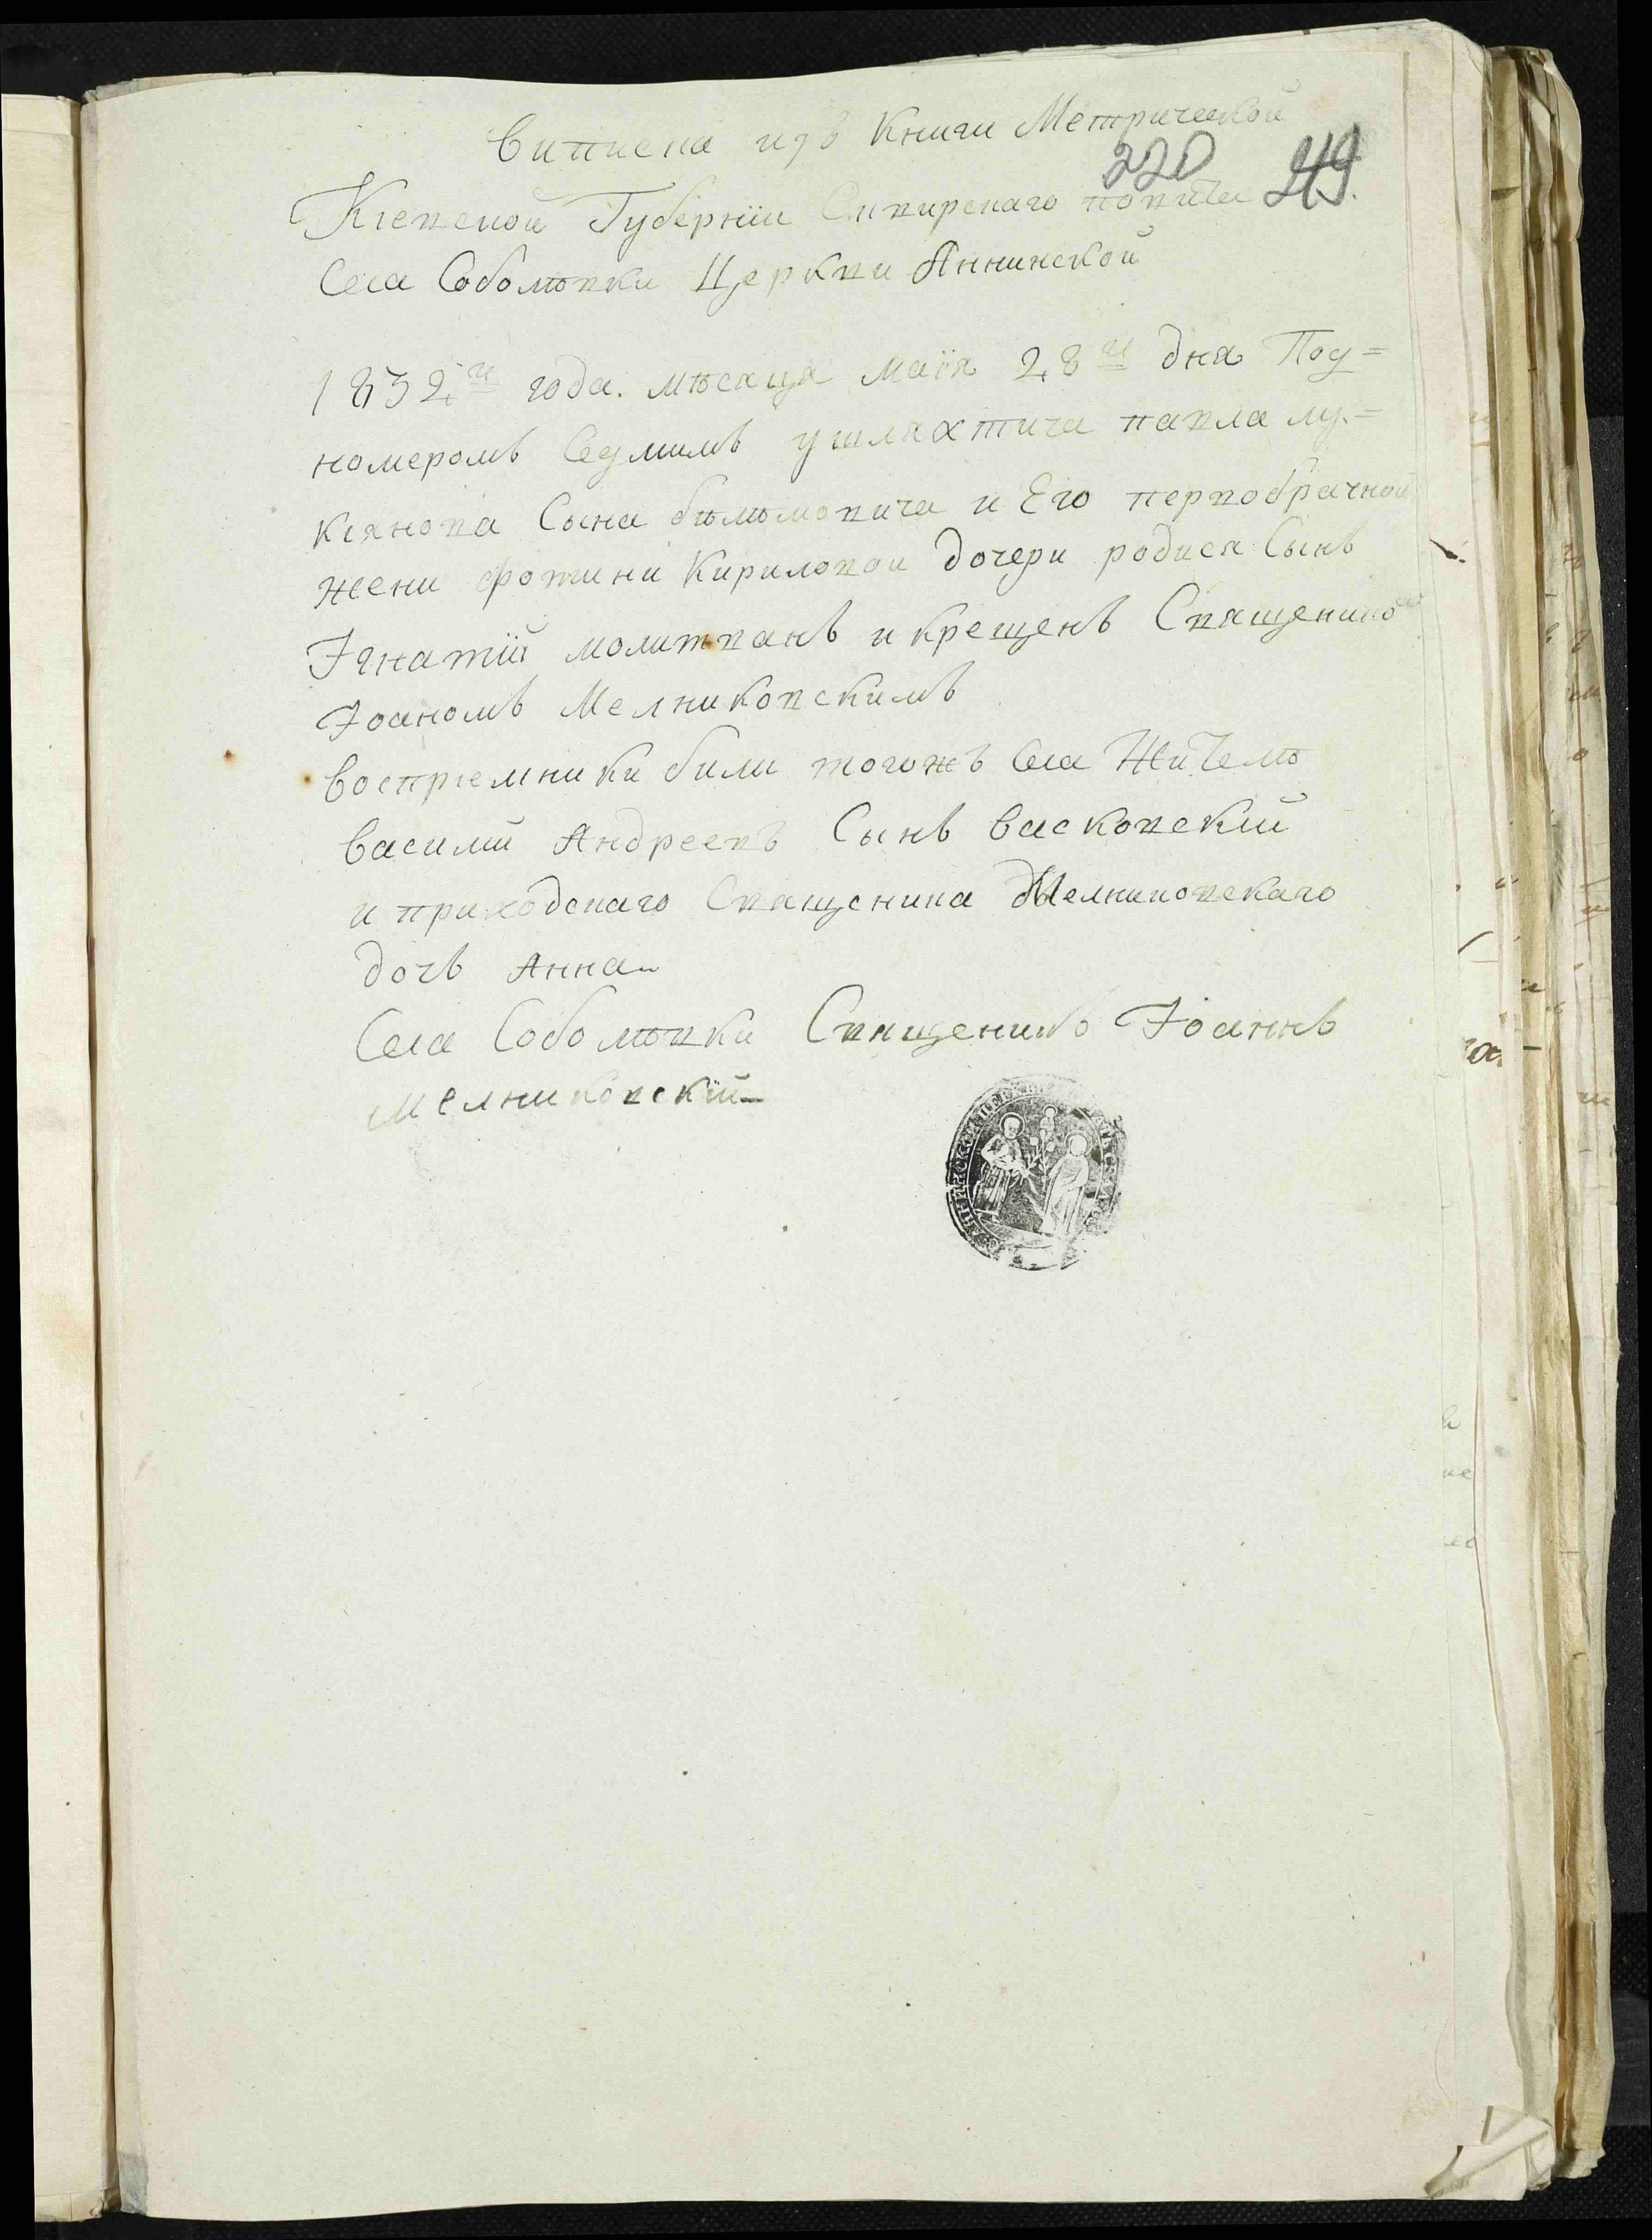 Виписка изъ Книги Метрической
220 219.
Кіевской Губерніи Сквирскаго повита
Села Соболювки Церкви Аннинской
1832и года. мѣсяца маія 28и дня Под=
номеромъ Седмимъ у шляхтича павла лу=
кіянова Сына и Его первобрачной
жени фотини Кириловои дочери родися Сынъ
Ігнатій молитванъ и крещенъ Священико
Іоаномъ Мелниковскимъ
Воспріемники били тогожъ Села Жителъ
Василий Андреевъ Сынъ Васковский
и приходскаго Священика Мелниковскаго
дочъ Анна
Села Соболювки Священикъ Іоаннъ
Мелниковскій